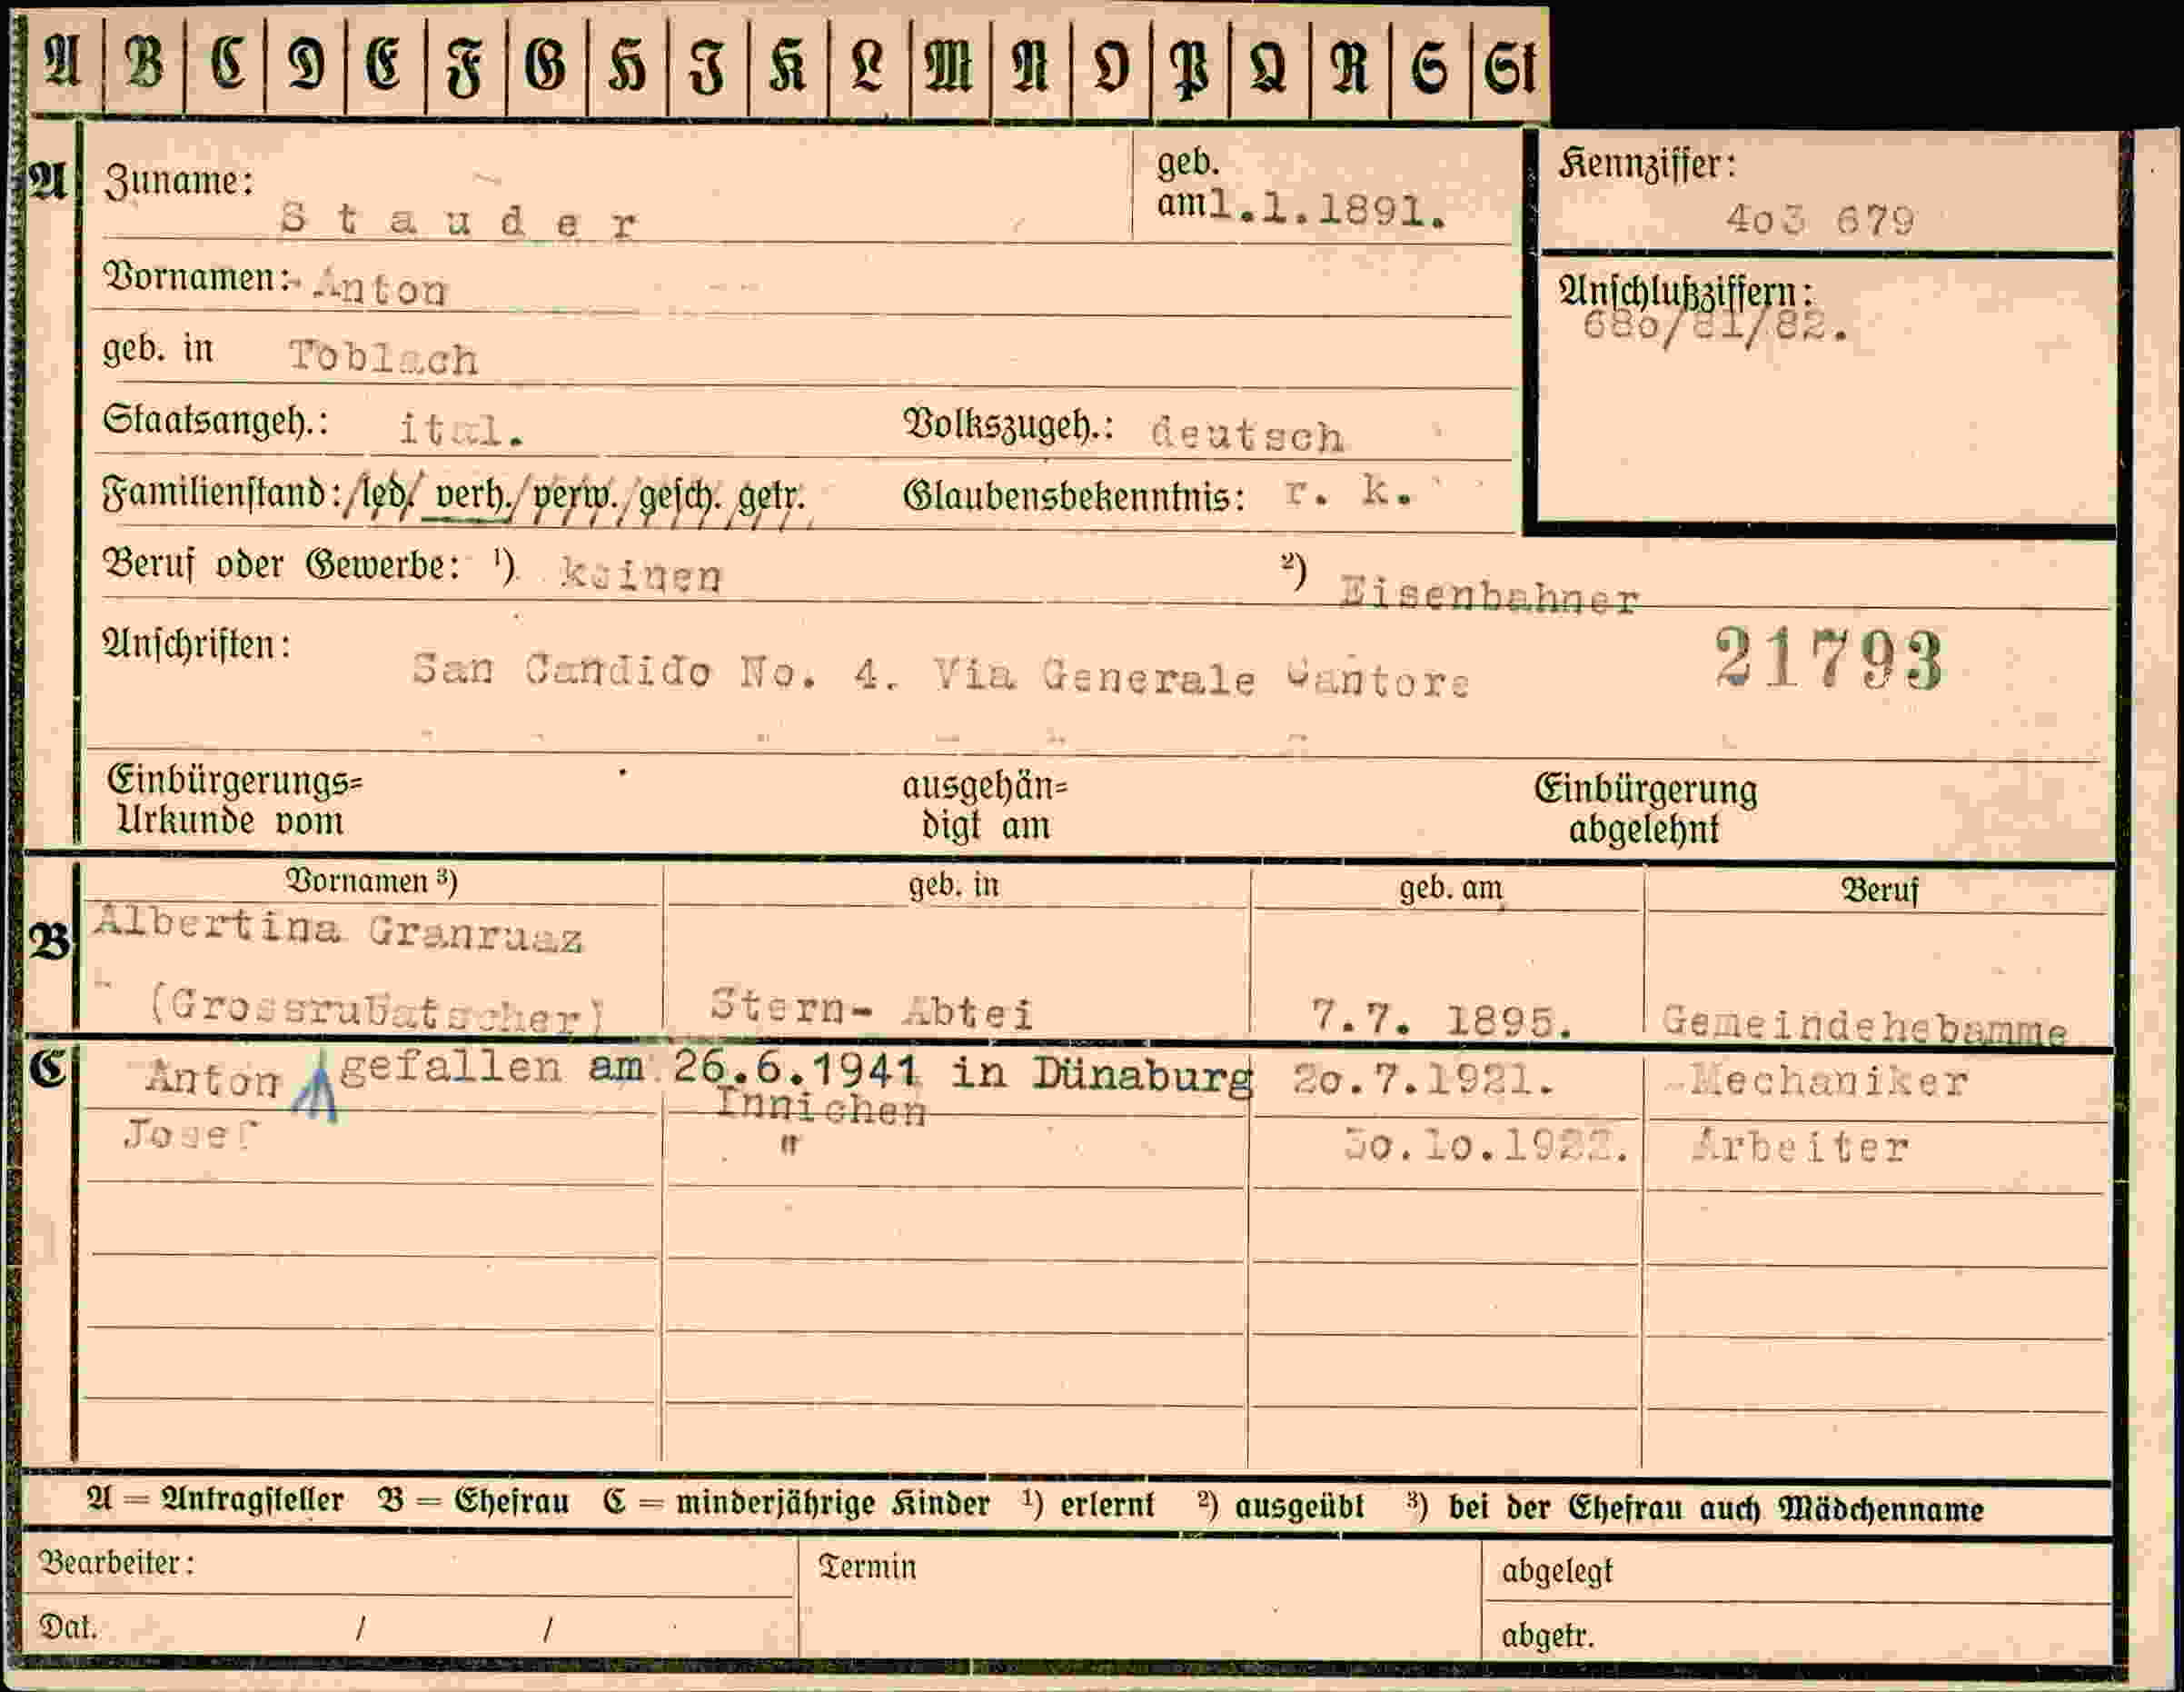 A B C D E F G H I K L M N O P Q R S St
A Zuname: Stauder geb. am 1.1.1891. Kennziffer: 4o3 679
Vornamen: Anton Anschlußziffern: 68o/81/82.
geb. in Toblach
Staatsangeh.: ital. Volkszugeh.: deutsch
Familienstand: led. verh. verw. gesch. getr. Glaubensbekenntnis: r. k.
Beruf oder Gewerbe: ¹) keinen ²) Eisenbahner
Anschriften: San Candido No. 4. Via Generale Cantore 21793
Einbürgerungs= ausgehän= Einbürgerung
Urkunde vom digt am abgelehnt
Vornamen ³) geb. in geb. am Beruf
B Albertina Granruaz
(Grossrubatscher) Stern- Abtei 7.7. 1895. Gemeindehebamme
C Anton gefallen am 26.6.1941 in Dünaburg 2o.7.1921. Mechaniker
Innichen
Josef " 3o.1o.1922. Arbeiter
A = Antragsteller B = Ehefrau C = minderjährige Kinder ¹) erlernt ²) ausgeübt ³) bei der Ehefrau auch Mädchenname
Bearbeiter: Termin abgelegt
Dat. / / abgetr.